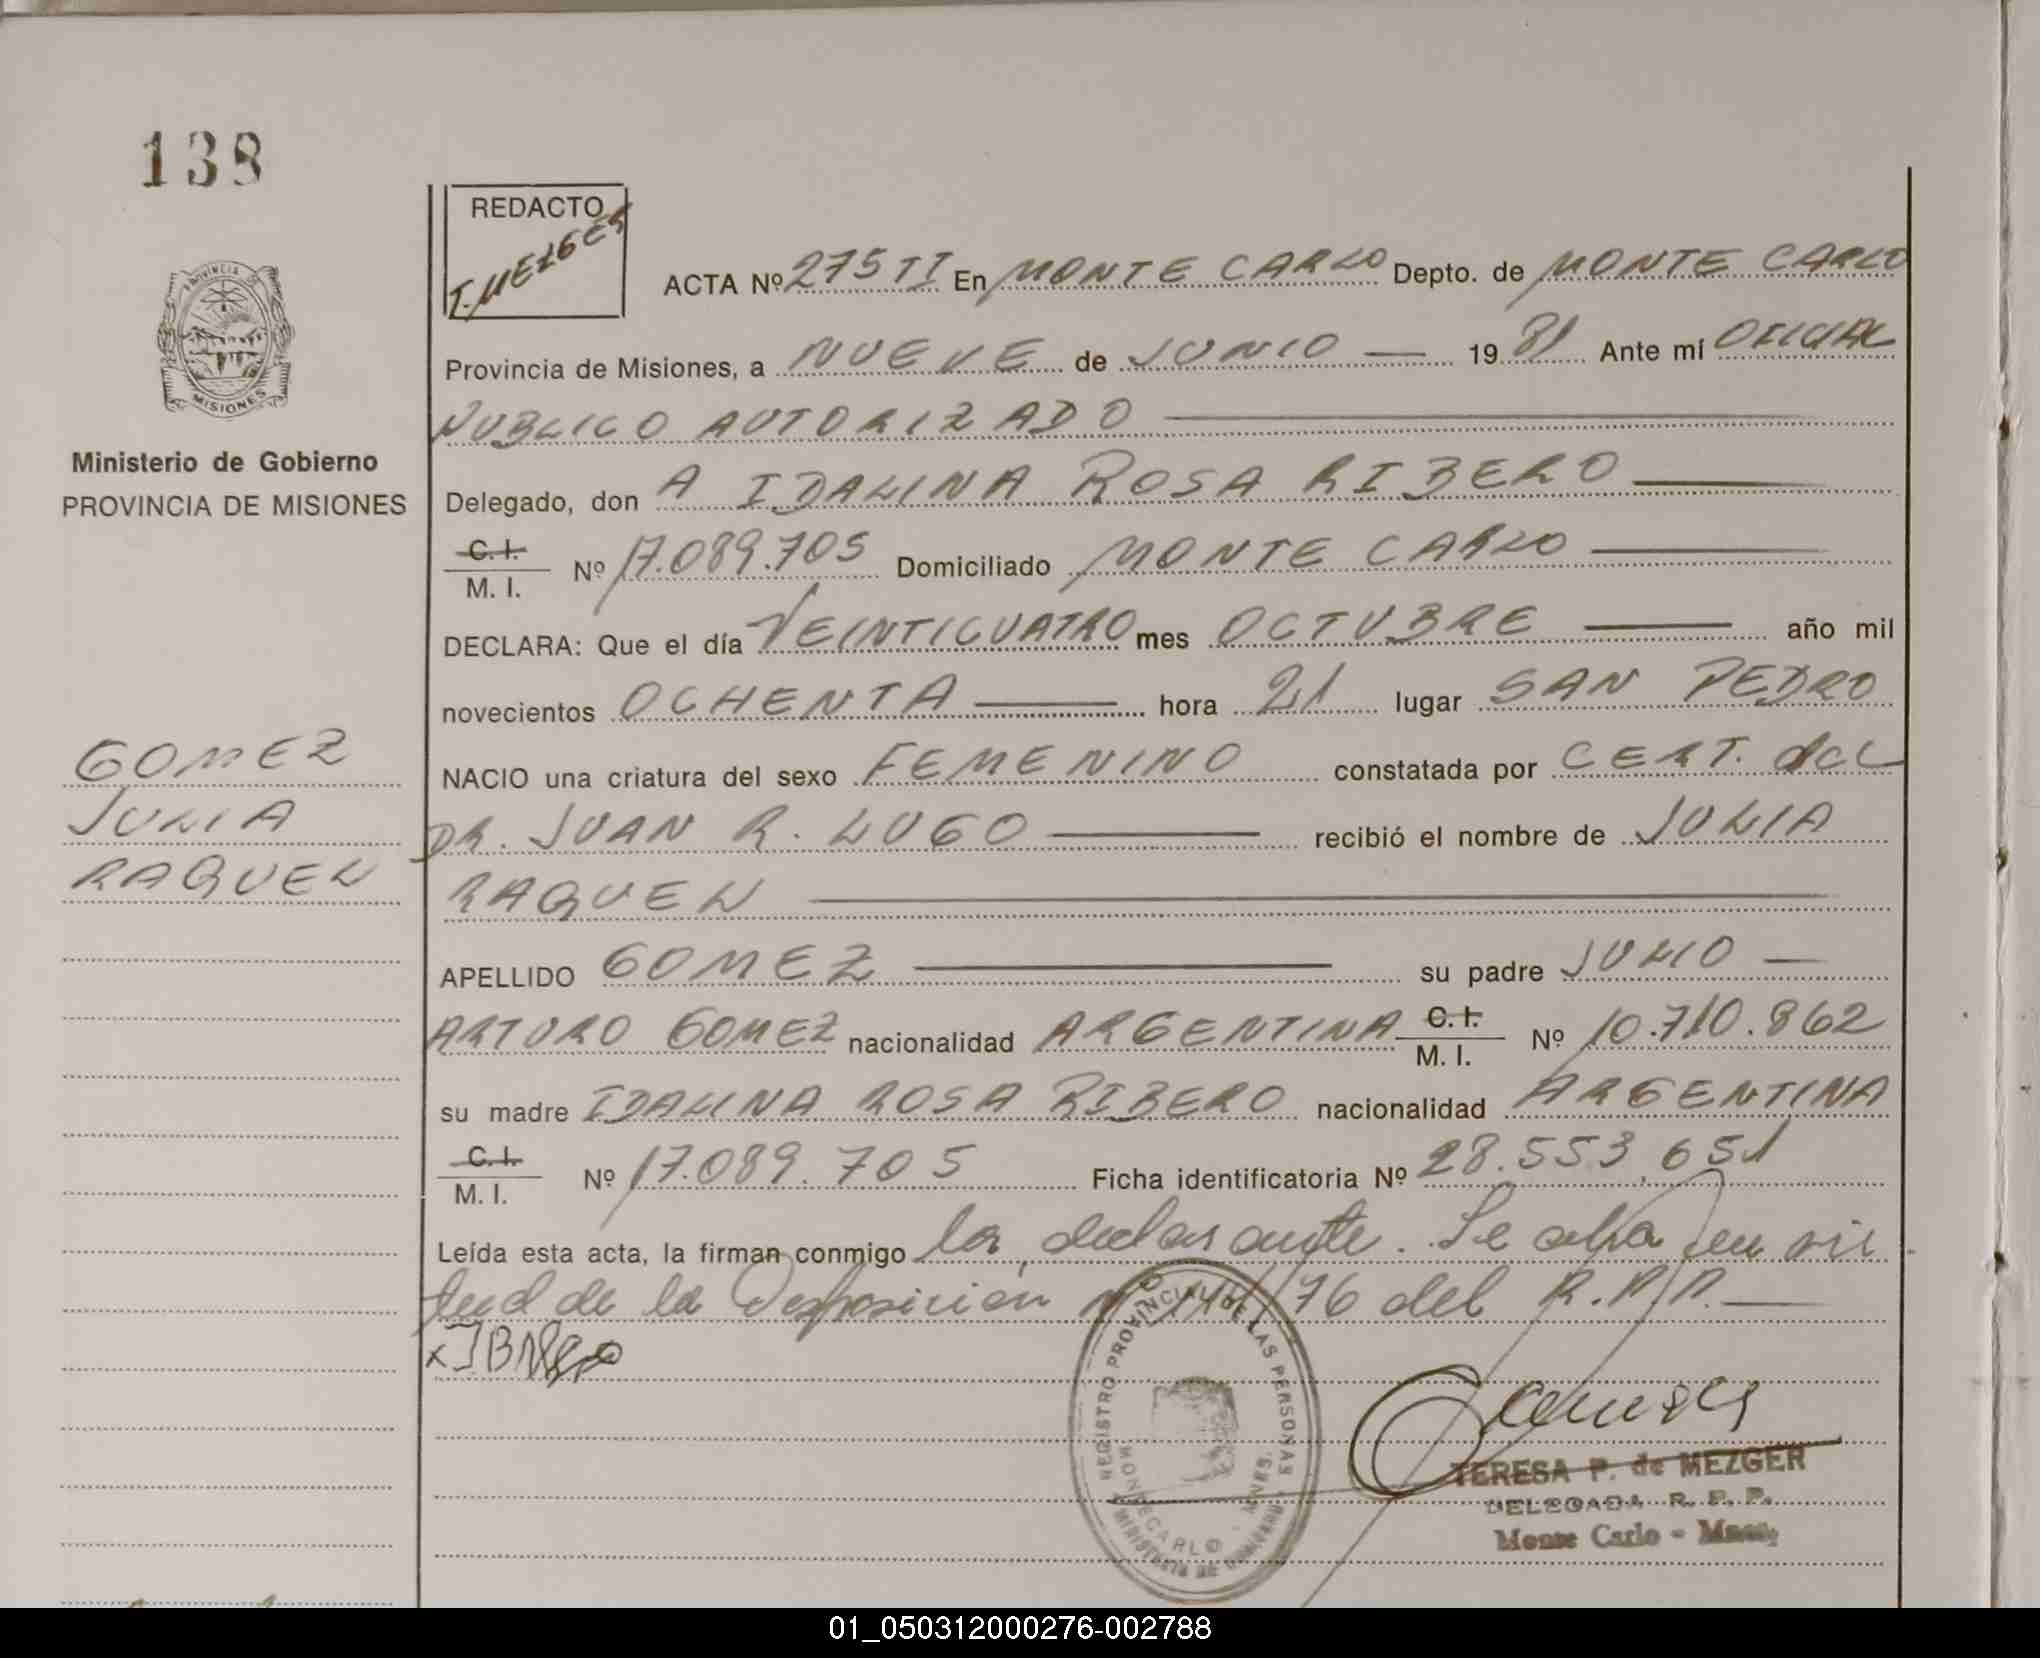 138
REDACTO
T. MEZGER
ACTA Nº 275 TI En MONTE CARLO Depto. de MONTE CARLO
Provincia de Misiones, a NUEVE de JUNIO — 19 81 Ante mí OFICIAL
PUBLICO AUTORIZADO
Delegado, don A IDALINA ROSA RIBERO
C.I. M. I. Nº 17.089.705 Domiciliado MONTE CARLO
DECLARA: Que el día VEINTICUATRO mes OCTUBRE año mil
novecientos OCHENTA hora 21 lugar SAN PEDRO
NACIO una criatura del sexo FEMENINO constatada por CERT. del
DR. JUAN R. LUGO recibió el nombre de JULIA
RAQUEL
APELLIDO GOMEZ su padre JULIO —
ARTURO GOMEZ nacionalidad ARGENTINA C.I. M. I. Nº 10.710.862
su madre IDALINA ROSA RIBERO nacionalidad ARGENTINA
C.I. M. I. Nº 17.089.705 Ficha identificatoria Nº 28.553.651
Leída esta acta, la firman conmigo la declarante. Se labra en vir
tud de la Disposición nº /76 del R.P.P.
PROVINCIA DE
MISIONES
Ministerio de Gobierno
PROVINCIA DE MISIONES
GOMEZ
JULIA
RAQUEL
REGISTRO PROVINCIAL DE LAS PERSONAS
MONTECARLO - MNES.
MINISTERIO DE GOBIERNO
TERESA P. de MEZGER
DELEGADA R. P. P.
Monte Carlo - Mnes.
01_050312000276-002788